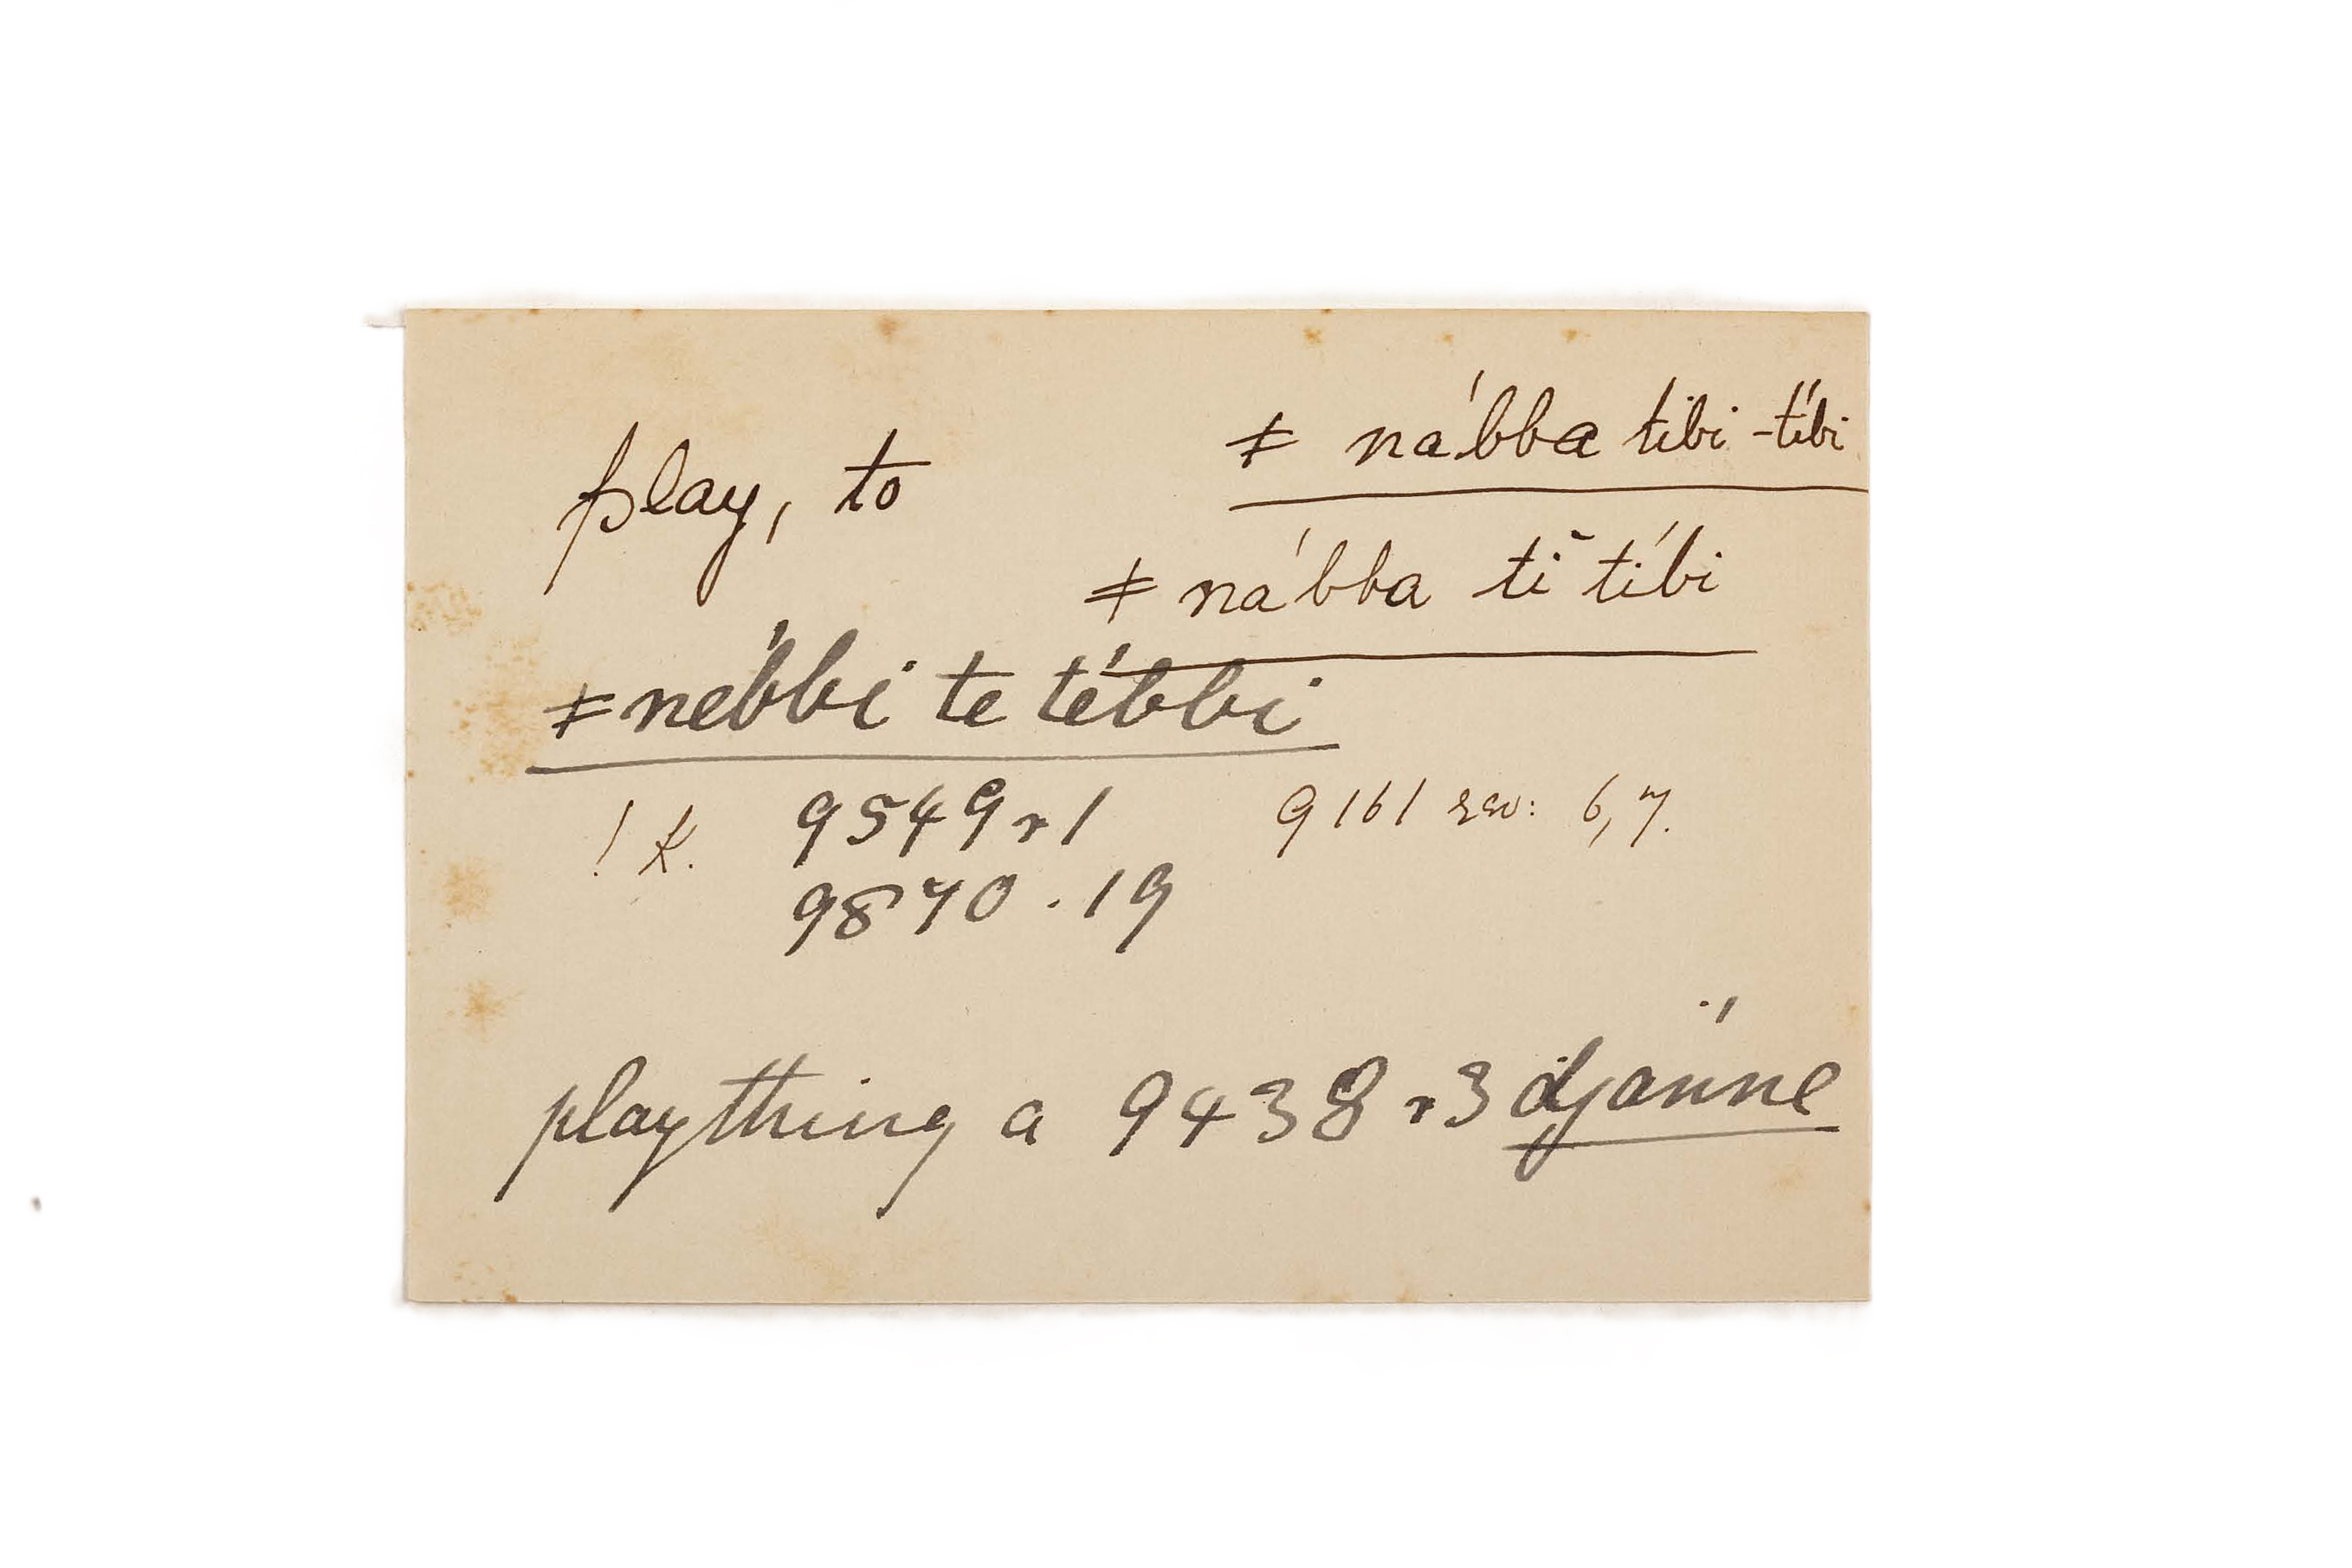 play, to ǂ nábba tibi-tíbi
ǂ nábba tĭ tíbi
ǂnébbi te tébbi
!k. 9549 r 1 9161 rev: 6, 7.
9870 . 19
plaything a 9438 r 3 djánne